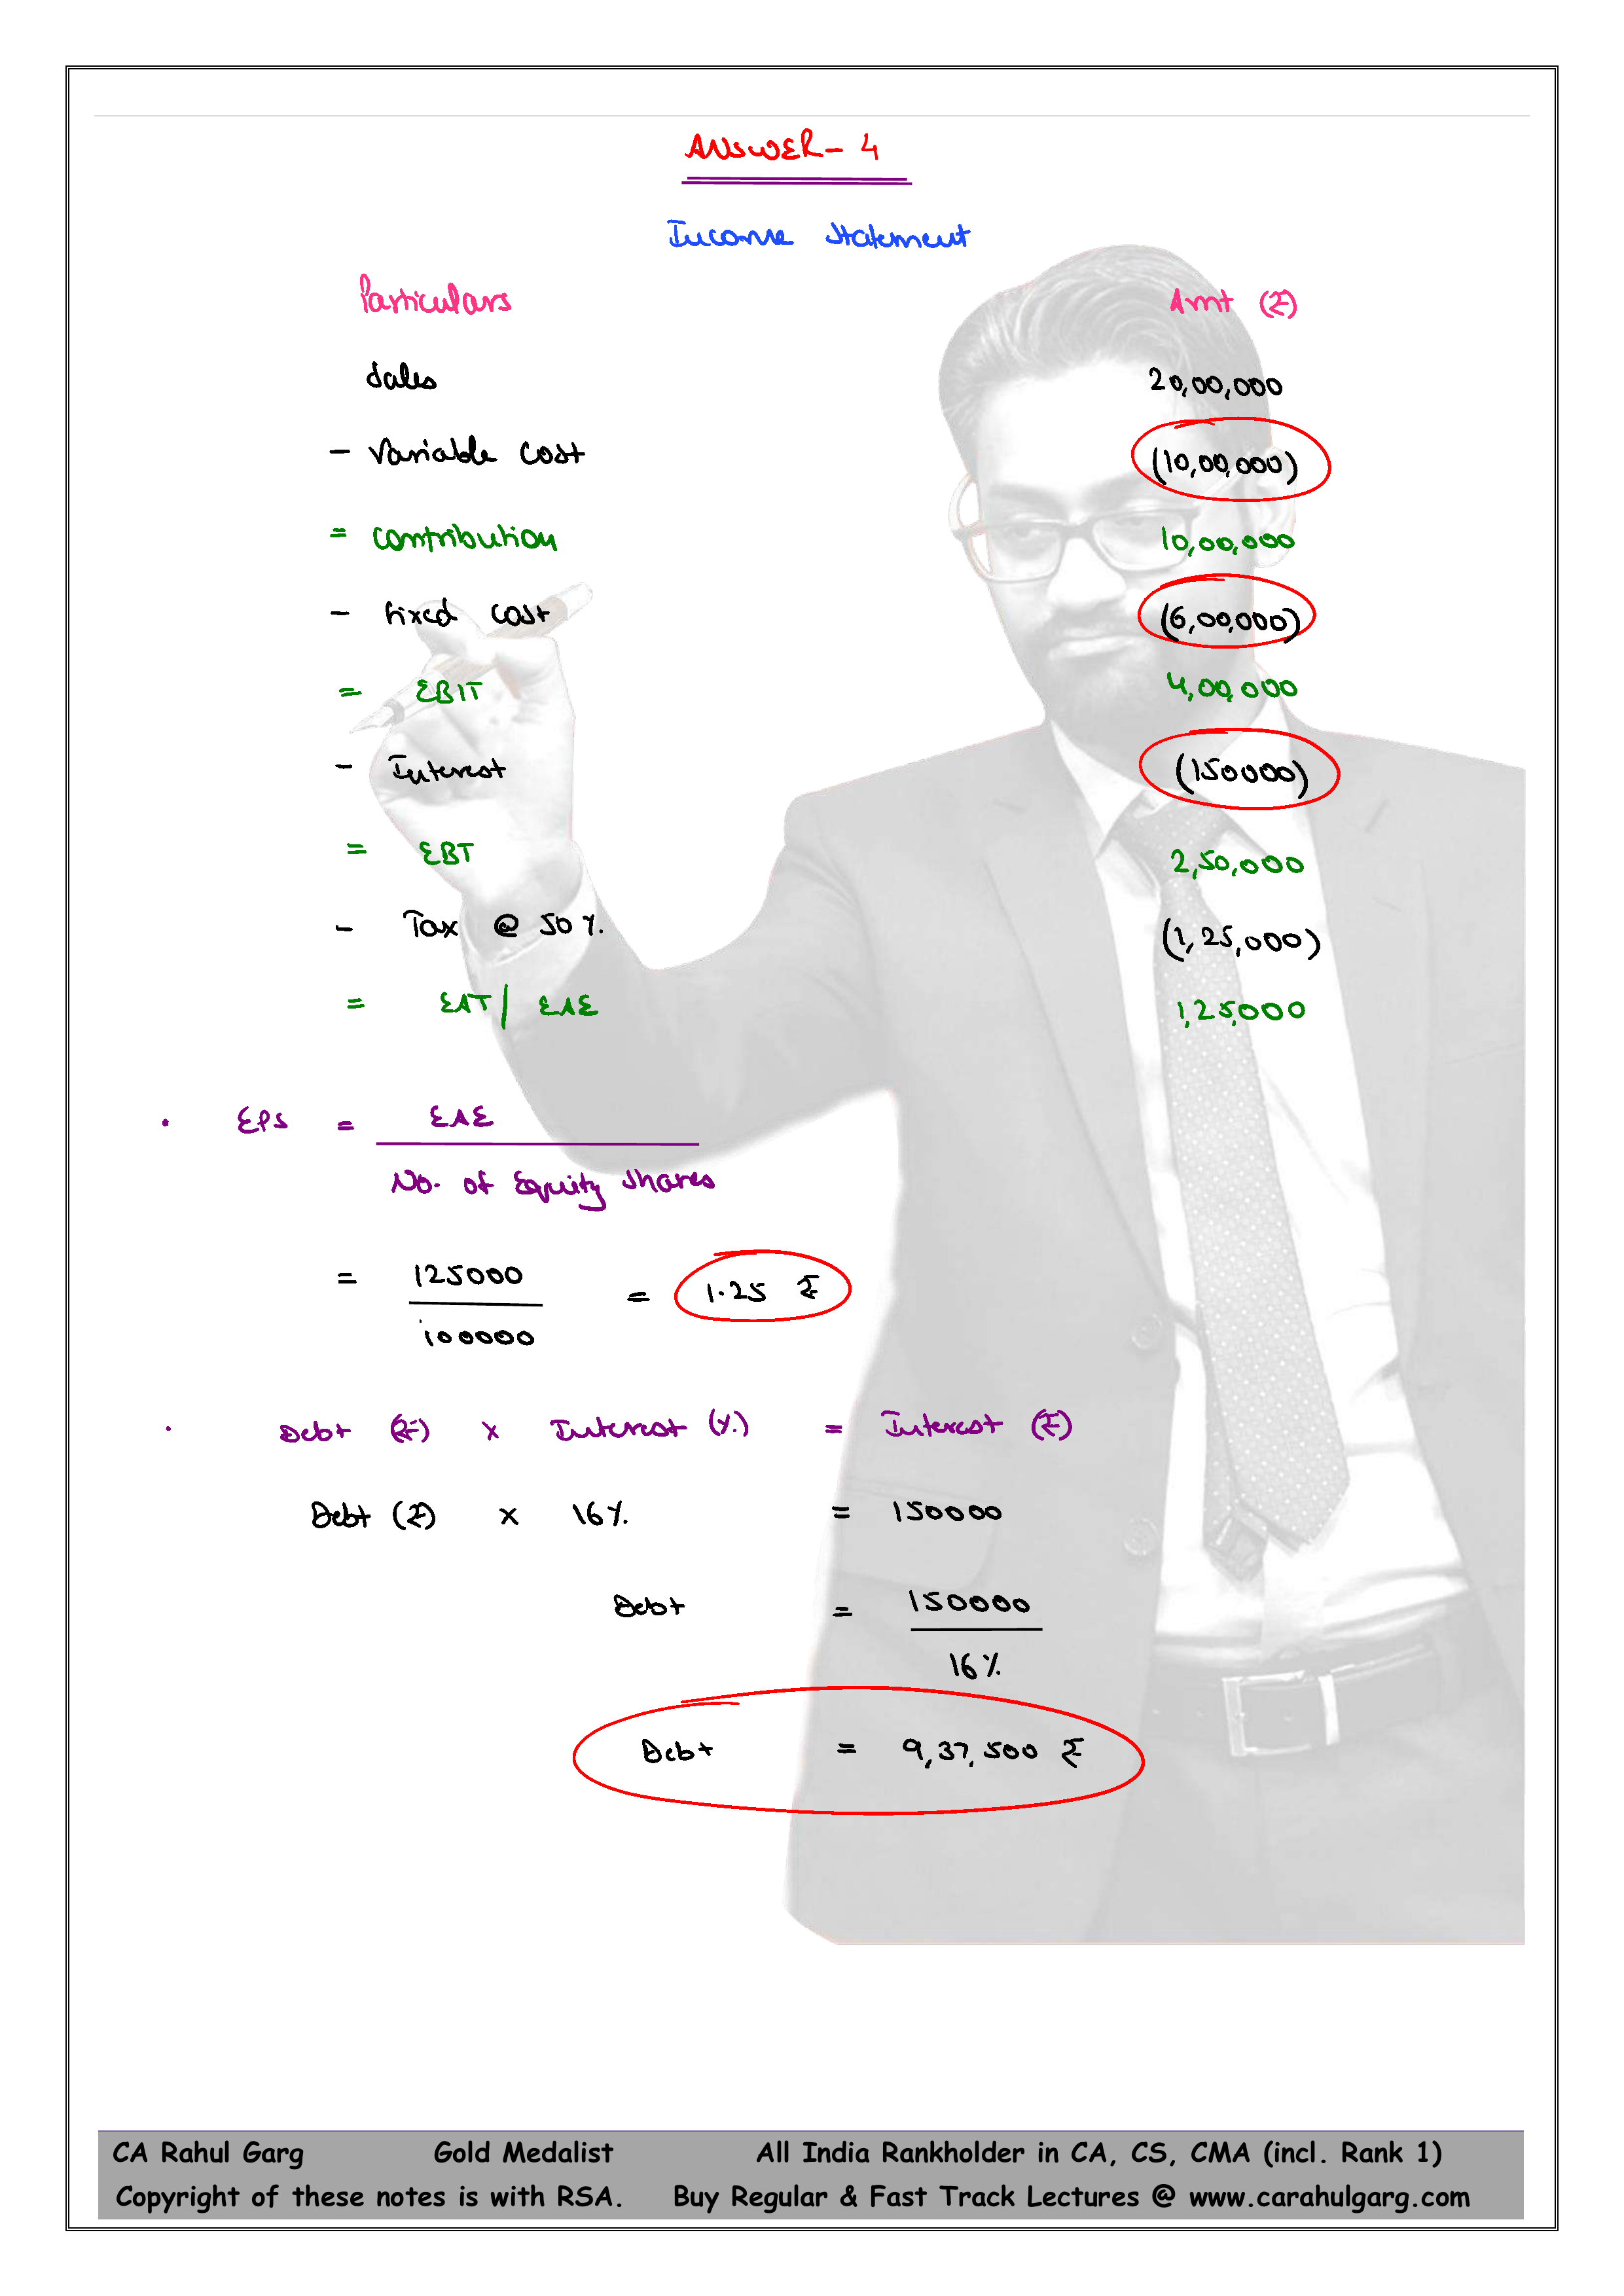 ANSWER - 4
Income Statement
Particulars Amt (₹)
Sales 20,00,000
- Variable Cost (10,00,000)
= Contribution 10,00,000
- Fixed Cost (6,00,000)
= EBIT 4,00,000
- Interest (150000)
= EBT 2,50,000
- Tax @ 50 %. (1,25,000)
= EAT / EAE 1,25,000
• EPS = EAE
No. of Equity Shares
= 125000 = 1.25 ₹
100000
• Debt (₹) x Interest (%) = Interest (₹)
Debt (₹) x 16% = 150000
Debt = 150000
16%
Debt = 9,37,500 ₹
CA Rahul Garg Gold Medalist All India Rankholder in CA, CS, CMA (incl. Rank 1)
Copyright of these notes is with RSA. Buy Regular & Fast Track Lectures @ www.carahulgarg.com